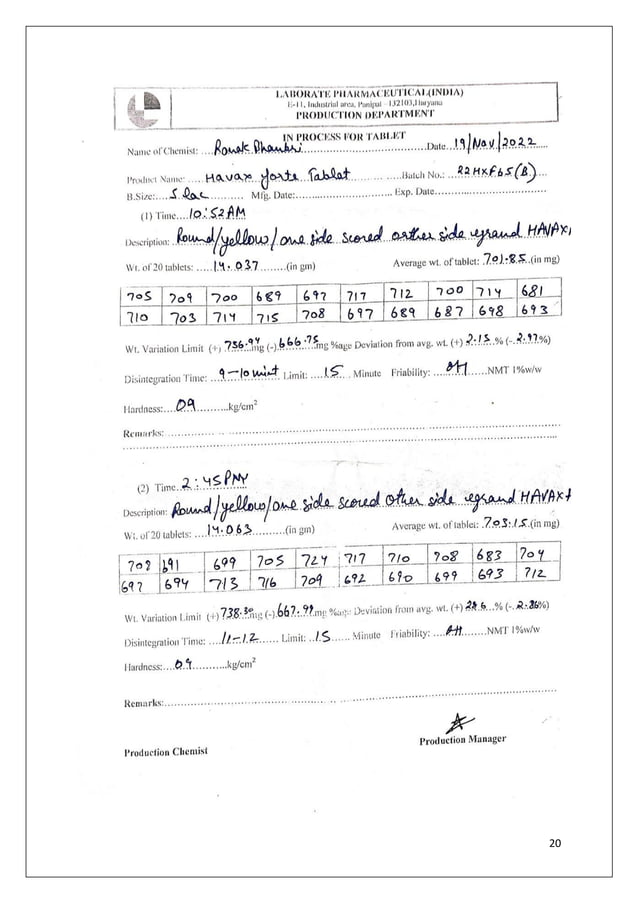 LABORATE PHARMACEUTICAL(INDIA)
E-11, Industrial area, Panipat -132103,Haryana
PRODUCTION DEPARTMENT
IN PROCESS FOR TABLET
Name of Chemist: ....Ronak Dhankri....Date..19/Nov/2022....
Product Name: ....Havax forte Tablet.... ....Batch No.: ..22HXF65(B)...
B.Size:....5 lac.......... Mfg. Date:.............................. Exp. Date..............................
(1) Time....10:52AM
Description: Round/yellow/one side scored other side egrand HAVAX,
Wt. of 20 tablets: .....14.037........(in gm) Average wt. of tablet: .701.85.(in mg)
705 709 700 689 697 717 712 700 714 681
710 703 714 715 708 697 689 687 698 693
Wt. Variation Limit (+) 736.94mg (-)666.75mg %age Deviation from avg. wt. (+) 2.15.% (-..2.97%)
Disintegration Time: ..9-10 mint Limit: ....15... Minute Friability: ....OK......NMT 1%w/w
Hardness:....09..........kg/cm2
Remarks:
(2) Time..2:45PM
Description: Round/yellow/one side scored other side egrand HAVAX
Wt. of 20 tablets: ....14.063..........(in gm) Average wt. of tablet: .703.15.(in mg)
702 691 699 705 724 717 710 708 683 704
697 694 713 716 709 692 690 699 693 712
Wt. Variation Limit (+) 738.30mg (-)667.99mg %age Deviation from avg. wt. (+) % (-. 2.86%)
Disintegration Time: ....11-12...... Limit: ..15...... Minute Friability: ....NMT 1%w/w
Hardness:....09...........kg/cm2
Remarks:
Production Chemist
Production Manager
20